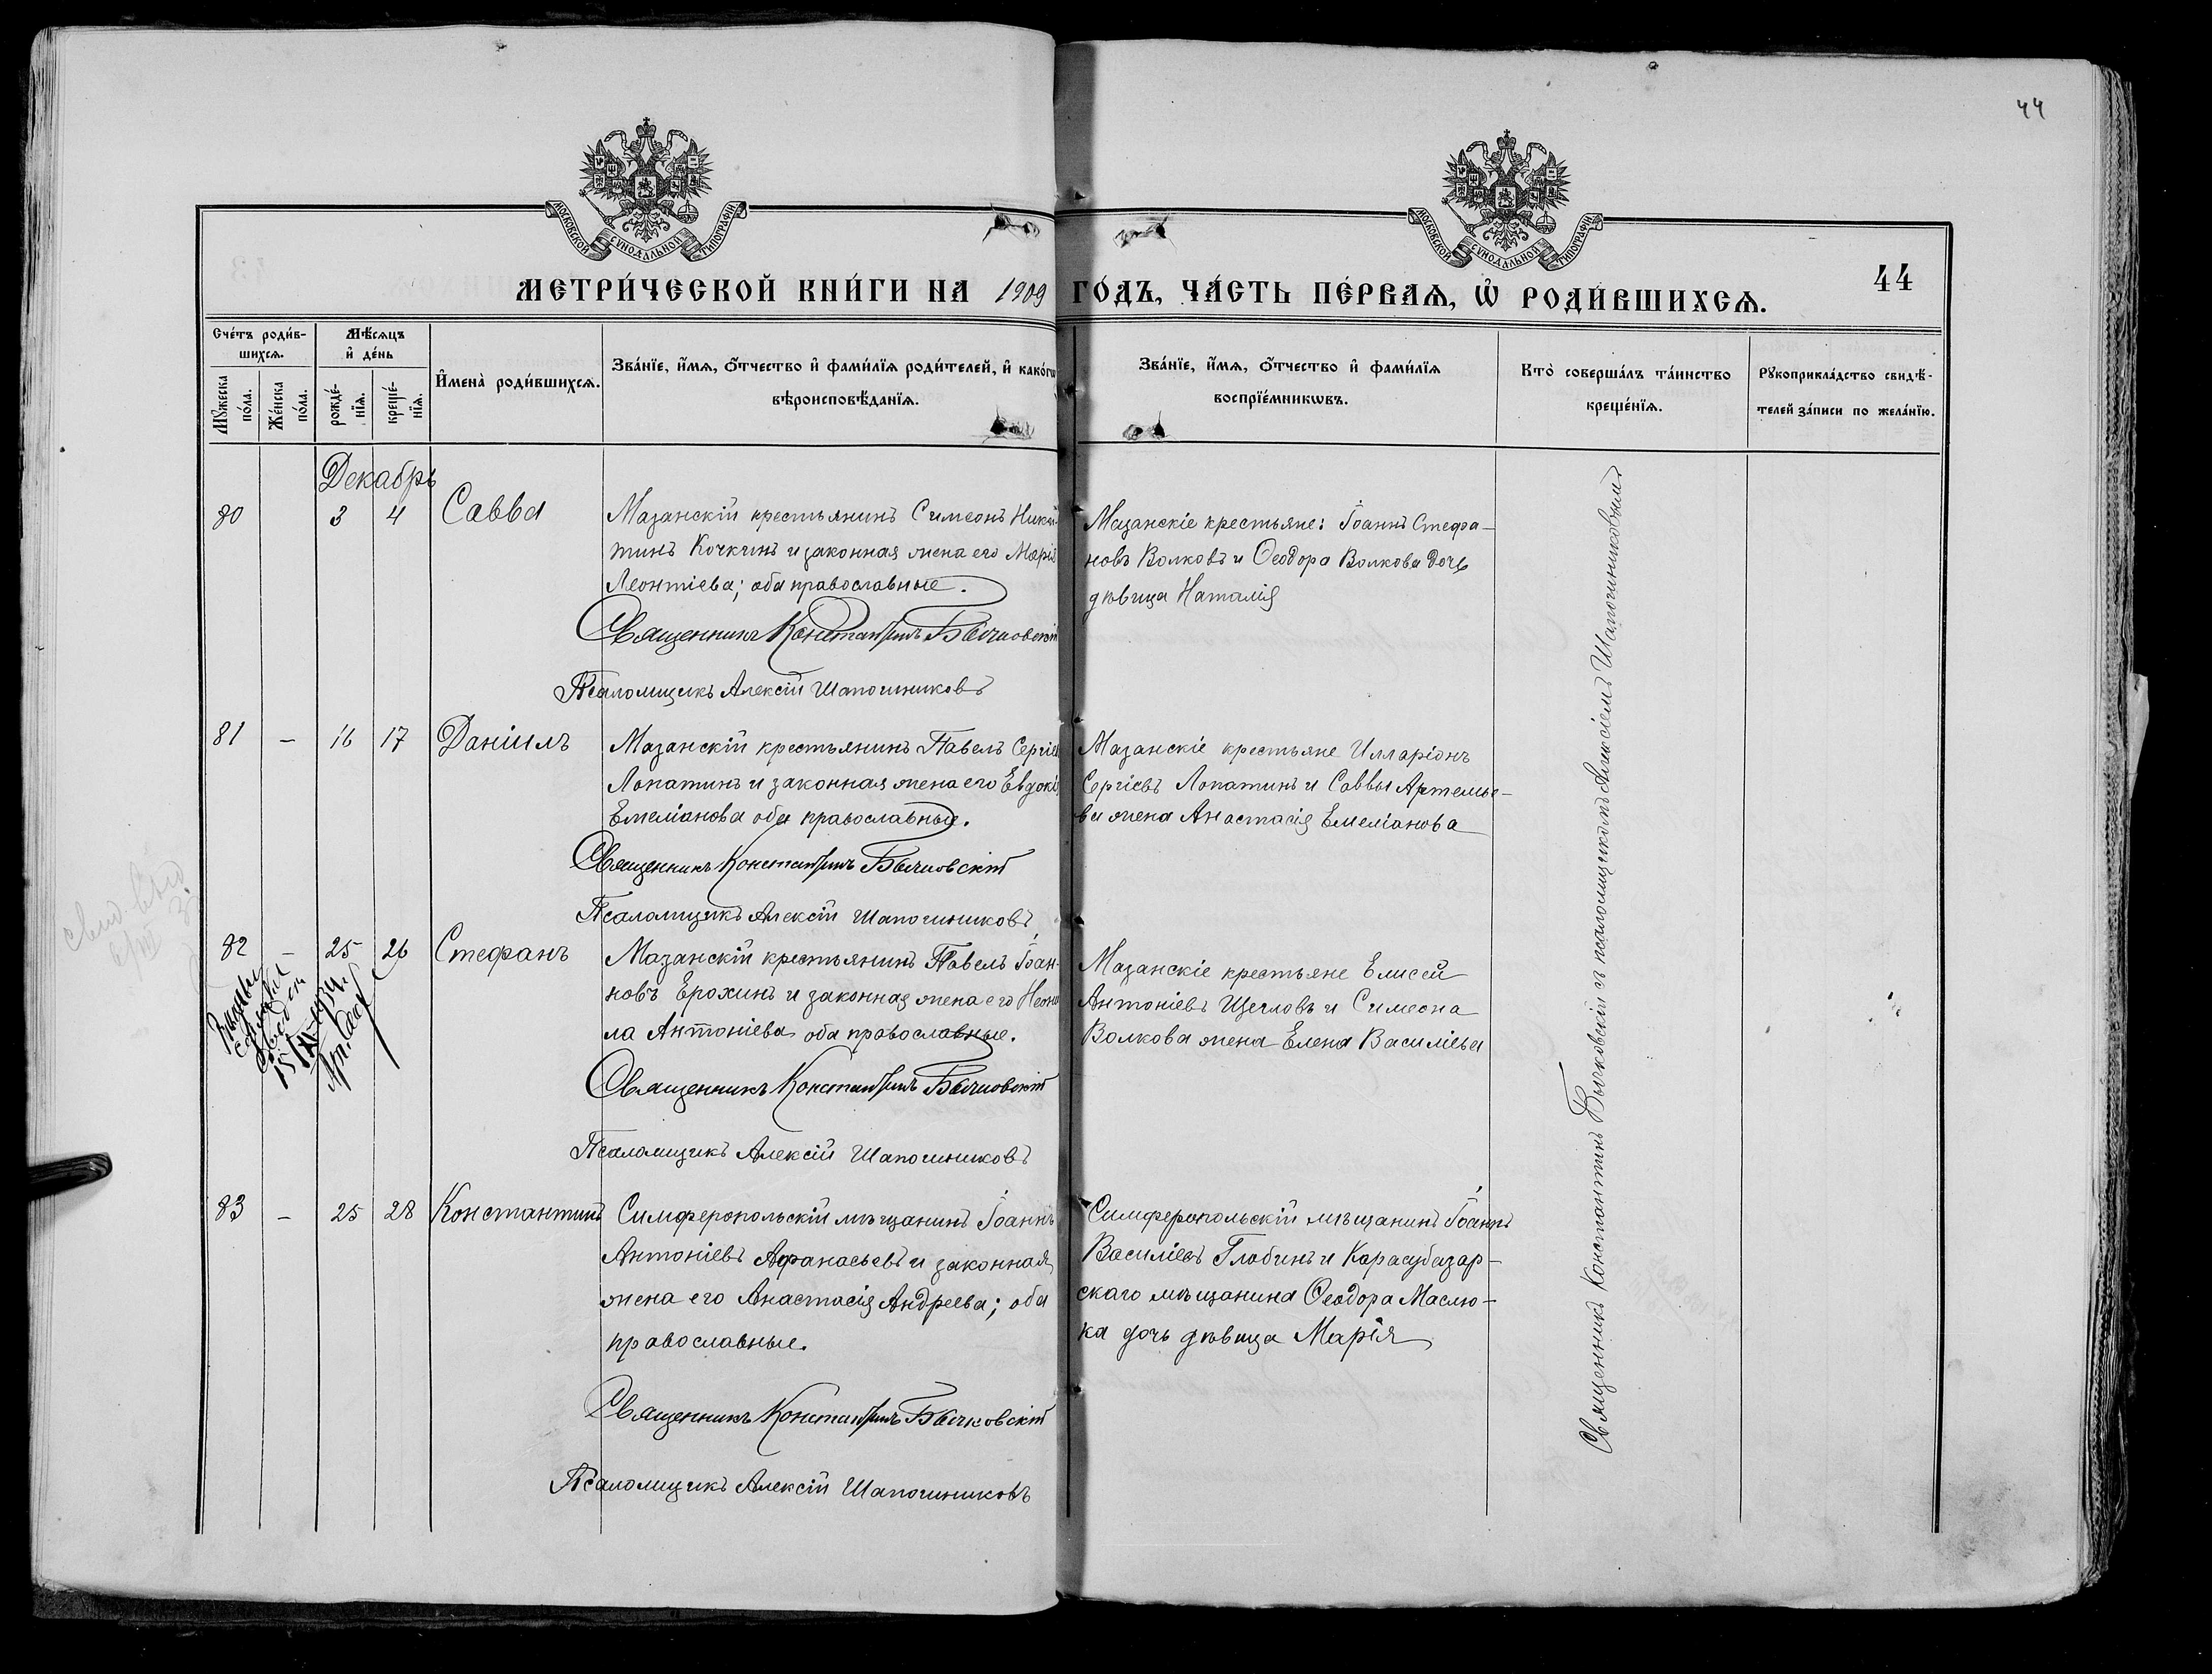 44
МОСКОВСКОЙ СУНОДАЛЬНОЙ ТИПОГРАФІИ
МОСКОВСКОЙ СУНОДАЛЬНОЙ ТИПОГРАФІИ
МЕТРИ́ЧЕСКОЙ КНИ́ГИ НА 1909 ГО́ДЪ, ЧА́СТЬ ПЕ́РВАѦ, Ѡ҆ РОДИ́ВШИХСѦ.
44
Сче́тъ роди́в-
шихсѧ.
Мꙋжеска по́ла.
Же́нска по́ла.
Мѣ́сѧцъ
и҆ де́нь
рожде́-нїѧ.
креще́-нїѧ.
И҆мена̀ роди́вшихсѧ.
Зва́нїе, и҆́мѧ, ѻ҆́тчество и҆ фами́лїѧ роди́телей, и҆ како́гѡ
вѣроисповѣ́данїѧ.
Зва́нїе, и҆́мѧ, ѻ҆́тчество и҆ фами́лїѧ
воспрїе́мникѡвъ.
Кто̀ соверша́лъ та́инство
креще́нїѧ.
Рꙋкоприкла́дство свидѣ́-
телей за́писи по жела́нїю.
Декабрь
80 3 4 Савва
Мазанскій крестьянинъ Симеонъ Ники-
тинъ Кочкинъ и законная жена его Марія
Леонтіева; оба православные.
Священникъ Константинъ Бычковскій
Псаломщикъ Алексій Шапошниковъ
Мазанскіе крестьяне: Іоаннъ Стефа-
новъ Волковъ и Ѳеодора Волкова дочь
дѣвица Наталія
81 – 16 17 Даніилъ
Мазанскій крестьянинъ Павелъ Сергіев
Лопатинъ и законная жена его Евдокія
Емеліанова оба православные.
Священникъ Константинъ Бычковскій
Псаломщикъ Алексій Шапошниковъ
Мазанскіе крестьяне Илларіонъ
Сергіевъ Лопатинъ и Саввы Артемье-
ва жена Анастасія Емеліанова
82 – 25 26 Стефанъ
Мазанскій крестьянинъ Павелъ Іоан-
новъ Ерохинъ и законная жена его Неони
ла Антоніева оба православные.
Священникъ Константинъ Бычковскій
Псаломщикъ Алексій Шапошниковъ
Мазанскіе крестьяне Елисей
Антоніевъ Щегловъ и Симеона
Волкова жена Елена Василіева
83 – 25 28 Константинъ
Симферопольскій мѣщанинъ Іоаннъ
Антоніевъ Афанасьевъ и законная
жена его Анастасія Андреева; оба
православные.
Священникъ Константинъ Бычковскій
Псаломщикъ Алексій Шапошниковъ
Симферопольскій мѣщанинъ Іоаннъ
Василіевъ Глобинъ и Карасубазар-
скаго мѣщанина Ѳеодора Маслю-
ка дочь дѣвица Марія
Священникъ Константинъ Бычковскій съ псаломщикомъ Алексіемъ Шапошниковымъ